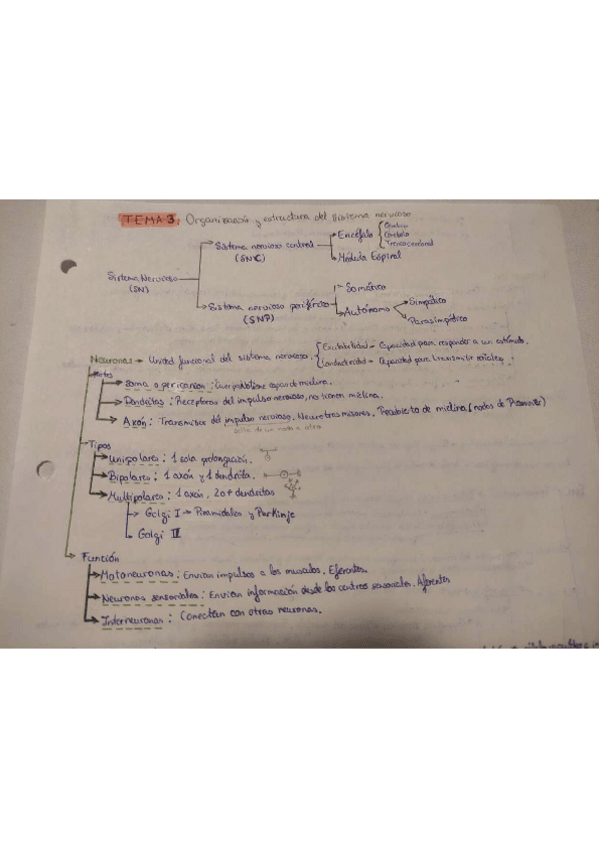 TEMA 3: Organización y estructura del sistema nervioso
Sistema Nervioso (SN)
Sistema nervioso central (SNC)
Encéfalo
Cerebro
Cerebelo
Tronco cerebral
Médula Espinal
Sistema nervioso periférico (SNP)
Somático
Autónomo
Simpático
Parasimpático
Neuronas → Unidad funcional del sistema nervioso.
Excitabilidad → Capacidad para responder a un estímulo.
Conductividad → Capacidad para transmitir
Partes
Soma o pericarion: Cuerpo
Dendritas: Receptoras del impulso nervioso, no tienen mielina.
Axón: Transmisor del impulso nervioso. Neurotransmisores. Recubierto de mielina (nodos de Ranvier)
salta de un nodo a otro
Tipos
Unipolares: 1 sola prolongación.
Bipolares: 1 axón y 1 dendrita.
Multipolares: 1 axón, 2 o + dendritas
Golgi I → Piramidales y Purkinje
Golgi II
Función
Motoneuronas: Envían impulsos a los músculos. Eferentes.
Neuronas sensoriales: Envían información desde los centros sensoriales. Aferentes
Interneuronas: Conectan con otras neuronas.